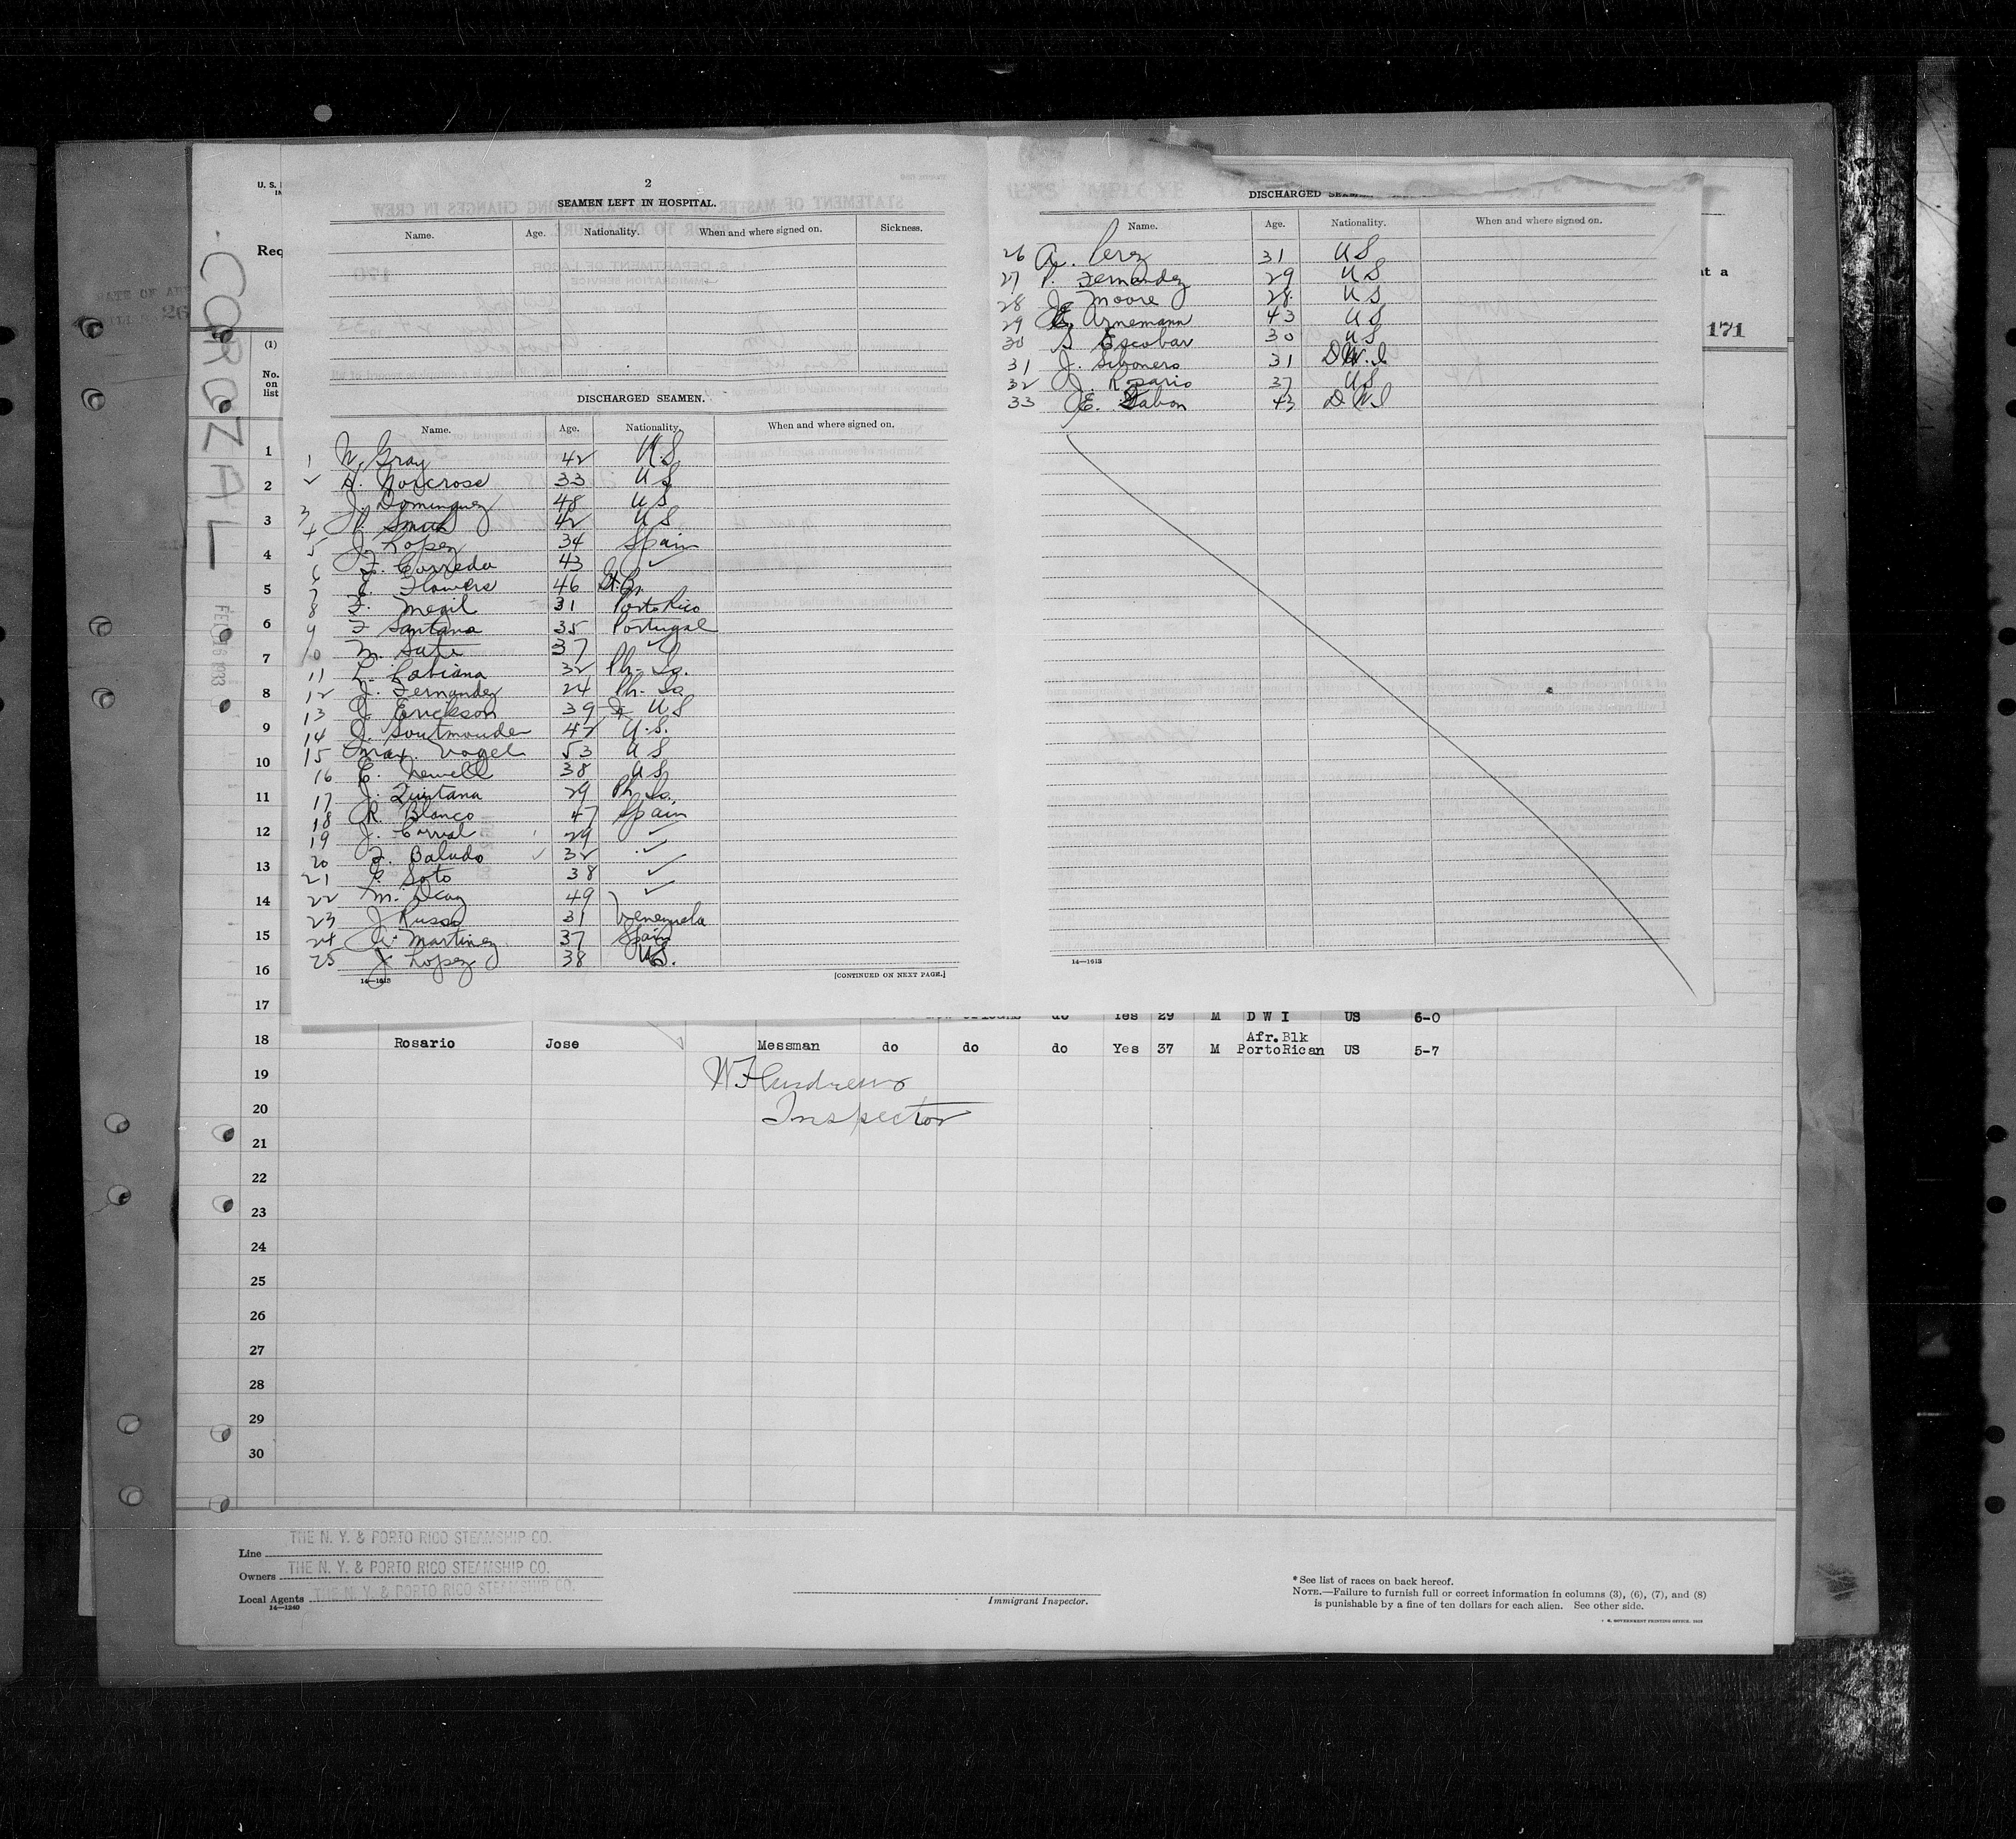 2
SEAMEN LEFT IN HOSPITAL.
Name. Age. Nationality. When and where signed on. Sickness.
DISCHARGED SEAMEN.
Name. Age. Nationality. When and where signed on.
1 N. Gray 42 U.S.
2 H. Norcross 33 U S
3 J. Dominguez 48 U S
4 Smith 42 U S
5 J. Lopez 34 Spain
6 F. Correda 43 ✓
7 Flowers 46 Gt. Br.
8 F. Megil 31 Porto Rico
9 F Santana 35 Portugal
10 M. Sate 37 ✓
11 L. Labiana 32 Ph. Is.
12 J. Fernandez 24 Ph. Is.
13 J. Erickson 39 U S
14 J. Soutmouder 47 U.S.
15 Max. Vogel 53 U S
16 E. Newell 38 U S
17 J. Quintana 29 Ph Is.
18 R. Blanco 47 Spain
19 J. Corral 29 ✓
20 F. Baludo 32 ✓
21 Soto 38 ✓
22 M. Diaz 49 ✓
23 J Russo 31 Venenuela
24 Martinez 37 Spain
25 J Lopez 38 U.S.
14—1613 [CONTINUED ON NEXT PAGE.]
DISCHARGED
Name. Age. Nationality. When and where signed on.
26 A. Perez 31 U S
27 P. Fernandez 29 U S
28 J. Moore 28 U S
29 Arnemann 43 U S
30 S Escobar 30 U S
31 J. Sibonero 31 D.W.I
32 J. Rosario 37 U S
33 E. Tabon 43 D W I
14—1613
U. S.
Req
at a
171
COROZAL
FEB 26 1933
(1)
No. on list
1
2
3
4
5
6
7
8
9
10
11
12
13
14
15
16
17 do Yes 29 M D W I US 6-0
18 Rosario Jose Messman do do do Yes 37 M Afr.Blk PortoRican US 5-7
19 Andrews
20 Inspector
21
22
23
24
25
26
27
28
29
30
Line THE N. Y. & PORTO RICO STEAMSHIP CO.
Owners THE N. Y. & PORTO RICO STEAMSHIP CO.
Local Agents THE N. Y. & PORTO RICO STEAMSHIP CO.
14—1240
Immigrant Inspector.
* See list of races on back hereof.
NOTE.—Failure to furnish full or correct information in columns (3), (6), (7), and (8)
is punishable by a fine of ten dollars for each alien. See other side.